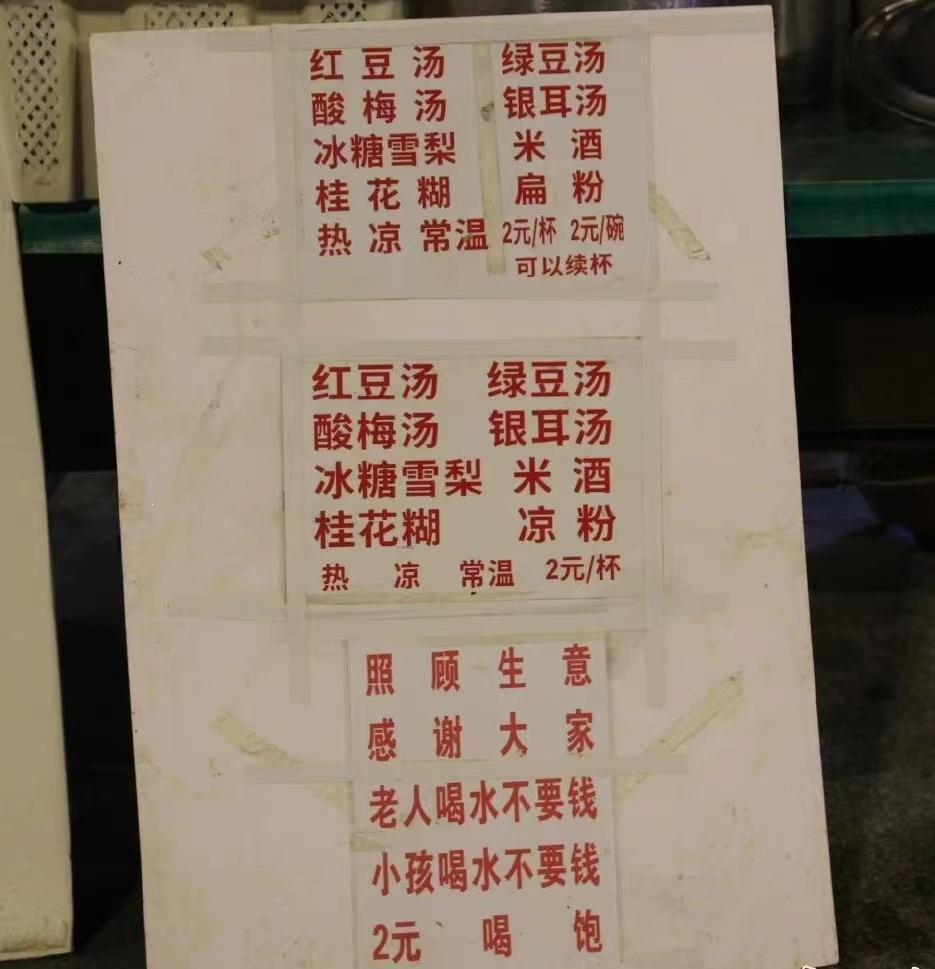 红豆汤 绿豆汤
酸梅汤 银耳汤
冰糖雪梨 米酒
桂花糊 扁粉
热 凉 常温 2元/杯 2元/碗
可以续杯
红豆汤 绿豆汤
酸梅汤 银耳汤
冰糖雪梨 米酒
桂花糊 凉粉
热 凉 常温 2元/杯
照顾生意
感谢大家
老人喝水不要钱
小孩喝水不要钱
2元喝饱